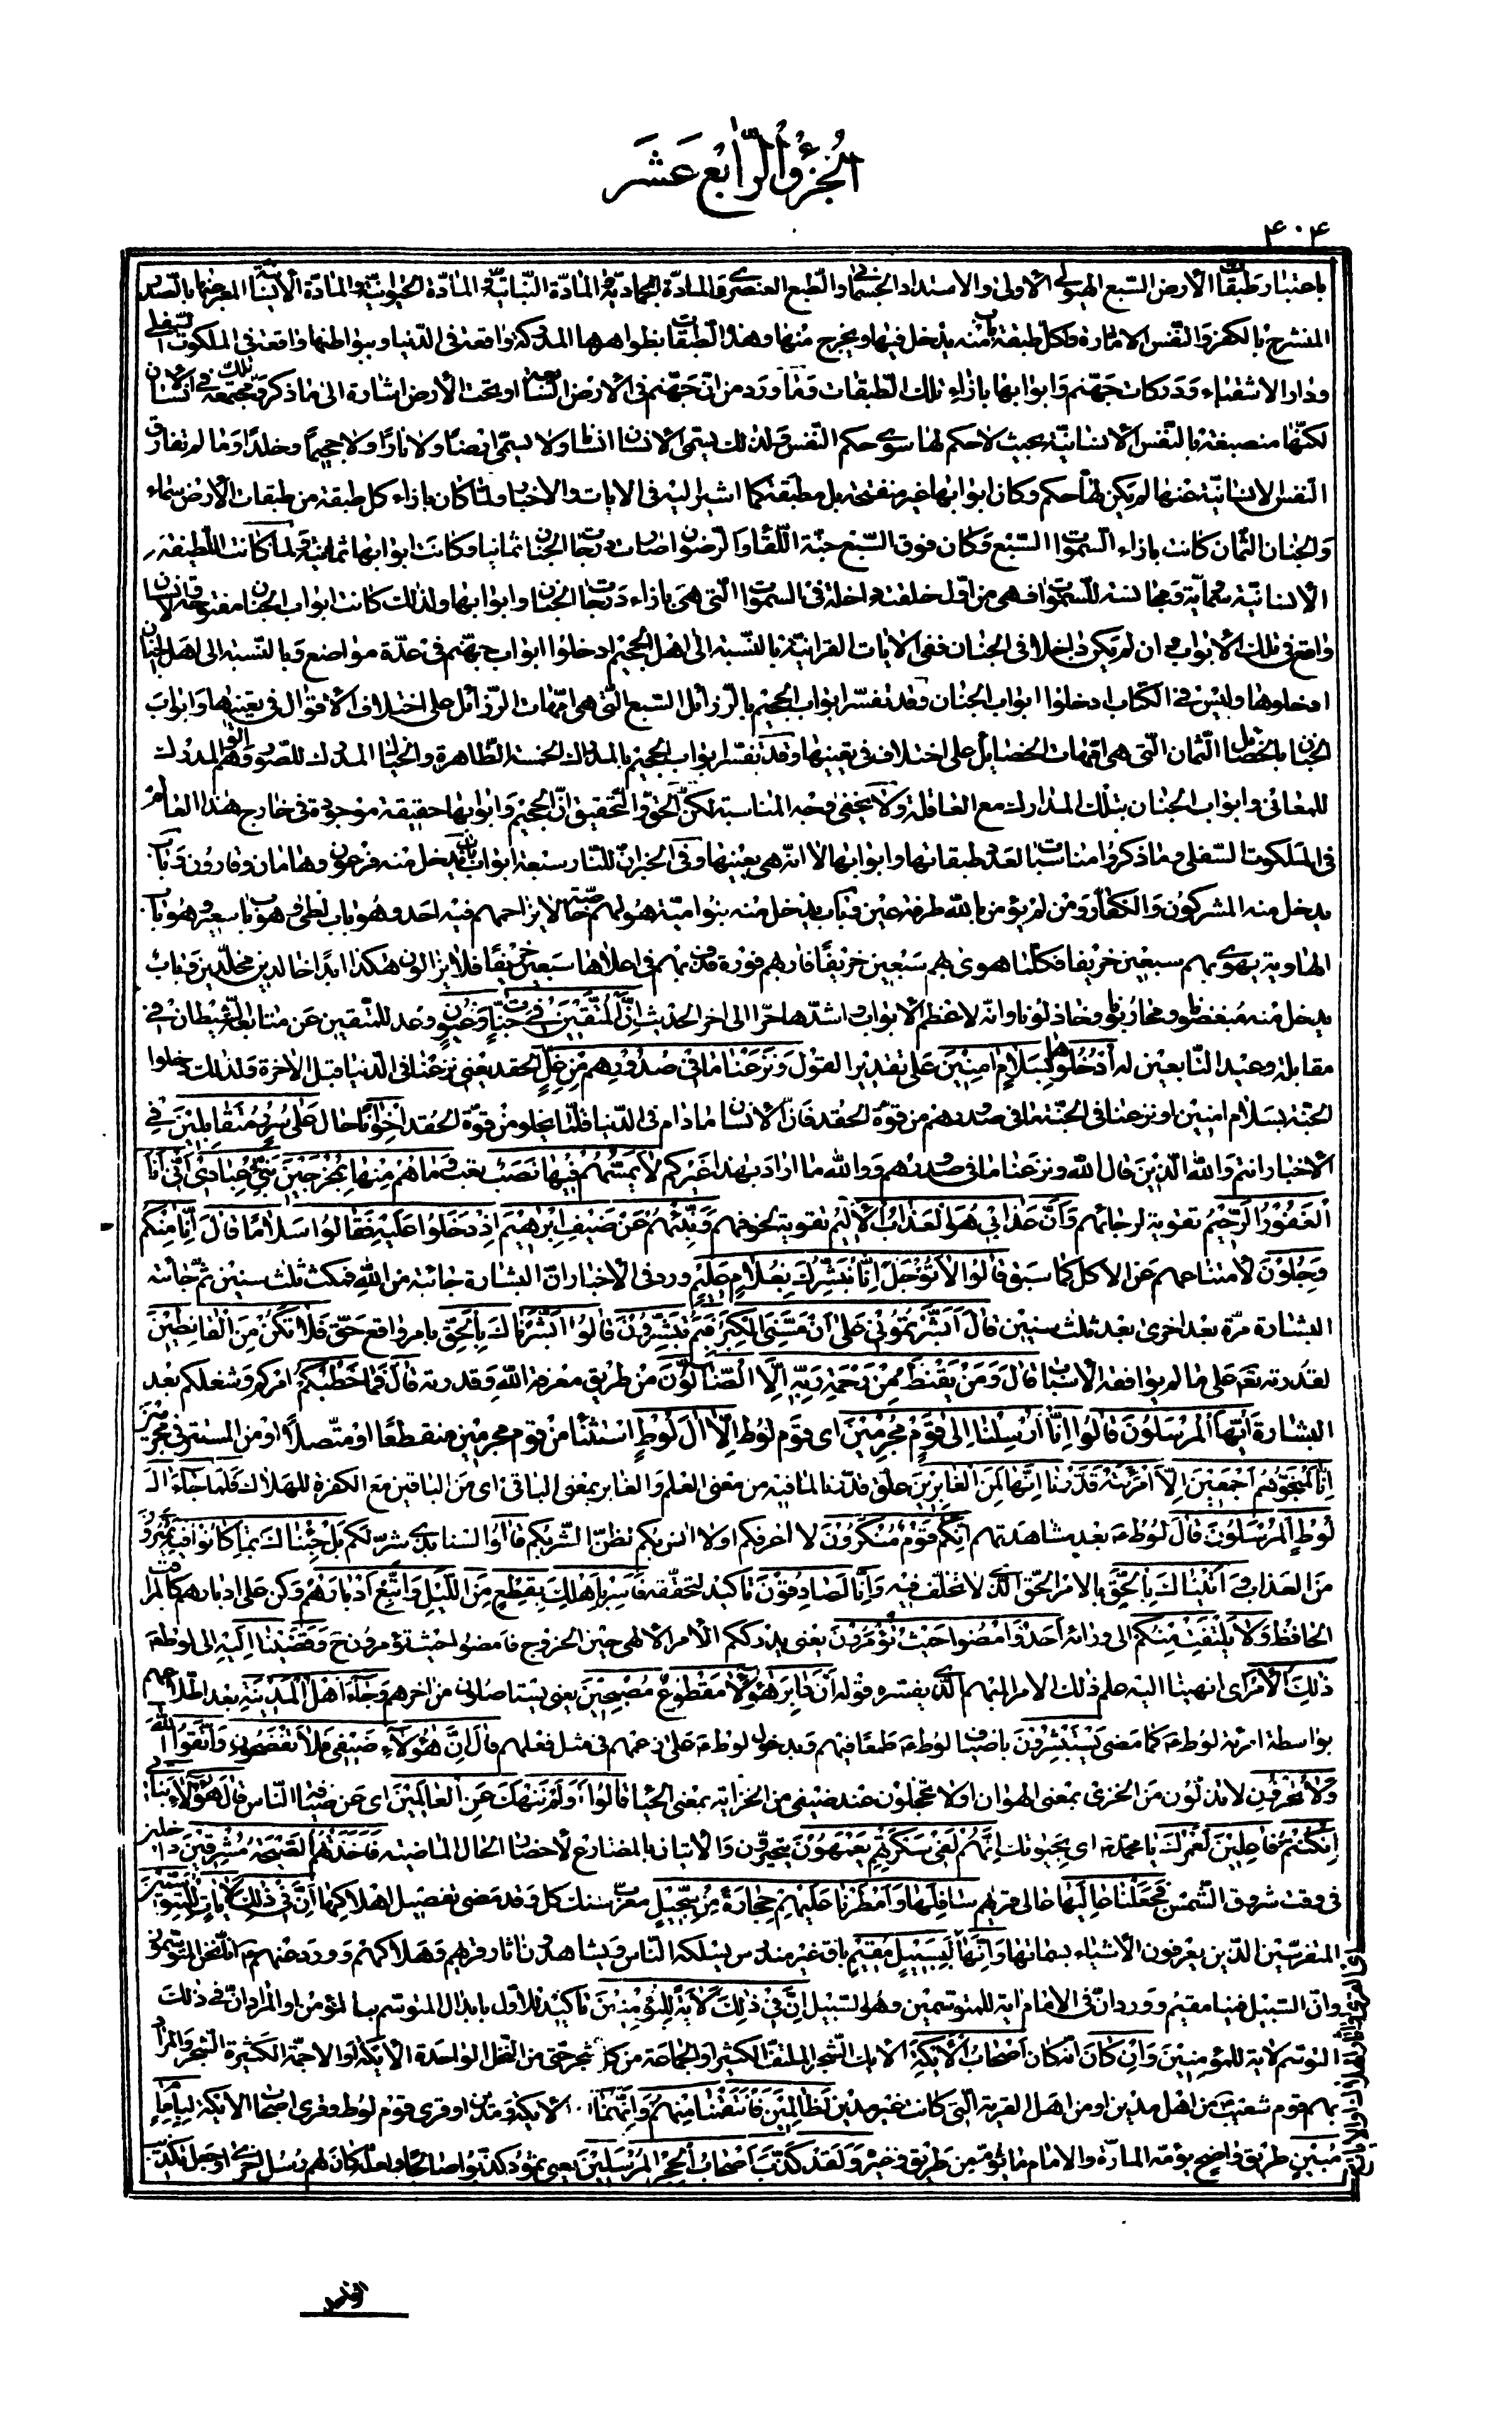 الجزؤ الرّابع عَشَر
۴۰۴
باعتبار طبقات الأرض السّبع الهيولى الأولى والامتداد الجسمانى والطّبع العنصرى والمادّة الجمادية والمادّة النّباتيّة والمادّة الحيوانيّة والمادّة الانسانيّة المعبّر عنها بالصّدر
المنشرح بالكفر والنّفس الامّارة ولكلّ طبقة باب منه يدخل فيها ويخرج منها وهذه الطّبقات بظواهرها المدركة واقعة فى الدّنيا وبواطنها واقعة فى الملكوت السّفلى
ودار الاشقياء ودركات جهنّم وابوابها بازاء تلك الطّبقات وما ورد من انّ جهنّم فى الأرض السّابعة او تحت الأرض اشارة الى ما ذكر وتلك مجتمعة فى الانسان
لكنّها منصبغة بالنّفس الأنسانيّة بحيث لا حكم لها سوى حكم النّفس ولذلك يسمّى الأنسان انسانا ولا يسمّى ارضا ولا نارًا ولا جحيمًا وخلدًا وما لم تفارق
النّفس الانسانيّة عنها لم يكن لها حكم وكان ابوابها غير منفتحة بل مطبقة كما اشير اليه فى الايات والاخبار ولمّا كان بازاء كل طبقة من طبقات الأرض سماء
والجنان الثّمان كانت بازاء السّموات السّبع وكان فوق السّبع جنّة اللّقاء والرّضوان صارت درجات الجنان ثمانيا وكانت ابوابها ثمانية ولمّا كانت اللّطيفة
الأنسانيّة سمائية ومجانسة للسّموات فهى من اوّل خلقته داخلة فى السّموات الّتى هى بازاء درجات الجنان وابوابها ولذلك كانت ابواب الجنان مفتوحة فالانسان
واقع فى تلك الأبواب وان لم يكن داخلا فى الجنان ففى الايات القرانيّة بالنّسبة الى اهل الجحيم ادخلوا ابواب جهنّم فى عدّة مواضع وبالنّسبة الى اهل الجنان
ادخلوها وليس فى الكتاب ادخلوا ابواب الجنان وقد تفسّر ابواب الجحيم بالرّذائل السّبع الّتى هى امّهات الرّذائل على اختلاف الاقوال فى تعيينها وابواب
الجنان بالخصائل الثّمان الّتى هى امّهات الخصايل على اختلاف فى تعيينها وقد تفسّر ابواب الجحيم بالمدارك الخمسة الظّاهرة والخيال المدرك للصّور والوهم المدرك
للمعانى وابواب الجنان بتلك المدارك مع العاقلة ولا يخفى وجه المناسبة لكنّ الحقّ والتّحقيق انّ الجحيم وابوابها حقيقة موجودة فى خارج هذا العالم
فى الملكوت السّفلى وما ذكروا مناسبات لعدد طبقاتها وابوابها لا انّه هى بعينها وفى الخبر انّ للنّار سبعة ابواب باب يدخل منه فرعون وهامان وقارون وباب
يدخل منه المشركون والكفّار ومن لم يؤمن بالله طرفة عين وباب يدخل منه بنوا اميّة هو لهم خاصّة لا يزاحمهم فيه احد وهو باب لظى وهو باب سعير وهو باب
الهاوية يهوى بهم سبعين خريفا فكلّما هوى بهم سبعين خريفًا فار بهم فورة قذف بهم فى اعلاها سبعين خريفًا فلا يزالون هكذا ابدًا خالدين مخلّدين وباب
يدخل منه مبغضونا ومحاربونا وخاذلونا وانّه لاعظم الابواب واشدّها حرّا الى اخر الحديث اِنَّ الْمُتَّقينَ فى جَنّاتٍ وَعُيُونٍ وعد للمتّقين عن متابعة الشّيطان فى
مقابلة وعيد التّابعين له اُدْخُلُوها بِسَلامٍ امِنينَ على تقدير القول وَنَزَعْنا ما فى صُدُورِهِم مِنْ غِلٍّ الحقد يعنى نزعنا فى الدّنيا قبل الاخرة ولذلك دخلوا
الجنّة بسلام امنين او نزعنا فى الجنّة ما فى صدورهم من قوّة الحقد فانّ الأنسان مادام فى الدّنيا قلّما يخلو من قوّة الحقد اِخْوانًا حال عَلى سُرُرٍ مُتَقابِلينَ فى
الاخبار انتم والله الّذين قال الله ونزعنا ما فى صدورهم والله ما اراد بهذا غيركم لا يَمَسُّهُمْ فيها نَصَبٌ تعب وَما هُمْ مِنْها بِمُخْرَجينَ نَبِّئْ عِبادى اَنّى اَنَا
الْغَفُورُ الرَّحيمُ تقوية لرجائهم وَاَنَّ عَذابى هُوَ الْعَذابُ الْاَليمُ تقوية لخوفهم وَنَبِّئْهُمْ عَنْ ضَيْفِ اِبْراهيمَ اِذْ دَخَلُوا عَلَيْهِ فَقالُوا سَلامًا قالَ اِنّا مِنْكُمْ
وَجِلُونَ لامتناعهم عن الاكل كما سبق قالُوا لا تَوْجَلْ اِنّا نُبَشِّرُكَ بِغُلامٍ عَليمٍ ورد فى الأخبار انّ البشارة جائت من الله فمكث ثلث سنين ثمّ جائت
البشارة مرّة بعد اخرى بعد ثلث سنين قالَ اَبَشَّرْتُمُونى عَلى اَنْ مَسَّنِىَ الْكِبَرُ فَبِمَ تُبَشِّرُونَ قالُوا بَشَّرْناكَ بِالْحَقِّ بامر واقع حقّ فَلا تَكُنْ مِنَ الْقانِطينَ
لقدرته تعالى على ما لم يوافقه الأسباب قالَ وَمَنْ يَقْنَطُ مِنْ رَحْمَةِ رَبِّهِ اِلَّا الضّالُّونَ من طريق معرفة الله وقدرته قالَ فَما خَطْبُكُمْ امركم وشغلكم بعد
البشارة اَيُّهَا الْمُرْسَلُونَ قالُوا اِنّا اُرْسِلْنا اِلى قَوْمٍ مُجْرِمينَ اى قوم لوط اِلّا الَ لُوطٍ استثناء من قوم مجرمين منقطعًا او متّصلًا او من المستتر فى مجرمين
اِنّا لَمُنَجُّوهُمْ اَجْمَعينَ اِلَّا امْرَأَتَهُ قَدَّرْنا اِنَّها لَمِنَ الْغابِرينَ علّق قدّرنا لما فيه من معنى العلم والغابر بمعنى الباقى اى من الباقين مع الكفرة للهلاك فَلَمّا جاءَ الَ
لُوطٍ الْمُرْسَلُونَ قالَ لوط ع بعد مشاهدتهم اِنَّكُمْ قَوْمٌ مُنْكَرُونَ لا اعرفكم اولا انس بكم نظنّ الشّر بكم قالُوا لسنا بذى شرّ لكم بَلْ جِئْناكَ بِما كانُوا فيهِ يَمْتَرُونَ
من العذاب وَاَتَيْناكَ بِالْحَقِّ بالامر الحقّ الّذى لا تخلّف فيه وَاِنّا لَصادِقُونَ تاكيد لتحقّقه فَاَسْرِ بِاَهْلِكَ بِقِطْعٍ مِنَ اللَّيْلِ وَاتَّبِعْ اَدْبارَهُمْ وكن على ادبارهم كالمراقب
الحافظ وَلا يَلْتَفِتْ مِنْكُمْ الى ورائه اَحَدٌ وَامْضُوا حَيْثُ تُؤْمَرُونَ يعنى يدرككم الأمر الالهى حين الخروج فامضوا حيث تؤمرون ح وَقَضَيْنا اِلَيْهِ الى لوط ع
ذلِكَ الْاَمْرَ اى انهينا اليه علم ذلك الامر المبهم الّذى يفسّره قوله اَنَّ دابِرَ هؤُلاءِ مَقْطُوعٌ مُصْبِحينَ يعنى يستاصلون من اخرهم وَجاءَ اَهْلُ الْمَدينَةِ بعد اطّلاعهم
بواسطة امرئة لوط ع كما مضى يَسْتَبْشِرُونَ باضياف لوط ع طمعًا فيهم وبدخول لوط ع على زعمهم فى مثل فعلهم قالَ اِنَّ هؤُلاءِ ضَيْفى فَلا تَفْضَحُونِ وَاتَّقُوا اللهَ
وَلا تُخْزُونِ لا تذلّون من الخزى بمعنى الهوان او لا تخجلون عند ضيفى من الخزاية بمعنى الحياء قالُوا اَوَلَمْ نَنْهَكَ عَنِ الْعالَمينَ اى عن ضيافة النّاس قالَ هؤُلاءِ بَناتى
اِنْ كُنْتُمْ فاعِلينَ لَعَمْرُكَ يا محمّد ص اى بحيوتك اِنَّهُمْ لَفى سَكْرَتِهِمْ يَعْمَهُونَ يتحيّرون والاتيان بالمضارع لأحضار الحال الماضية فَاَخَذَتْهُمُ الصَّيْحَةُ مُشْرِقينَ داخلين
فى وقت شروق الشّمس فَجَعَلْنا عالِيَها عالى قريهم سافِلَها وَاَمْطَرْنا عَلَيْهِمْ حِجارَةً مِنْ سِجّيلٍ معرّب سنك كل وقد مضى تفصيل اهلاكها اِنَّ فى ذلِكَ لَاياتٍ لِلْمُتَوَسِّمينَ
المتفرّسين الّذين يعرفون الأشياء بسماتها وَاِنَّها لَبِسَبيلٍ مُقيمٍ باق غير مندرس يسلكه النّاس ويشاهدون اثار قراهم وهلاكهم وورد عنهم ع انّا نحن المتوسّمون
وانّ السّبيل فينا مقيم وورد انّ فى الامام اية للمتوسّمين وهو السّبيل اِنَّ فى ذلِكَ لَايَةً لِلْمُؤْمِنينَ تأكيد للاوّل بابدال المتوسّم بالمؤمن او المراد انّ فى ذلك
التوسّم لاية للمؤمنين وَاِنْ كانَ انّه كان اَصْحابُ الْاَيْكَةِ الايك الشّجر الملتفّ الكثير او الجماعة من كلّ شجر حتّى من النّخل الواحدة الأيكة او الاجمة الكثيرة الشّجر والمراد
بهم قوم شعيب ع من اهل مدين او من اهل القرية الّتى كانت غير مدين لَظالِمينَ فَانْتَقَمْنا مِنْهُمْ وَاِنَّهُما الأيكة ومدين او قرى قوم لوط وقرى اصحاب الايكة لَبِاِمامٍ
مُبينٍ طريق واضح يؤمّه المارّة والامام ما يؤتمّ من طريق وغيره وَلَقَدْ كَذَّبَ اَصْحابُ الْحِجْرِ الْمُرْسَلينَ يعنى ثمود كذّبوا صالحًا ولعلّه كان لهم رسل اخرى او جعل تكذيب